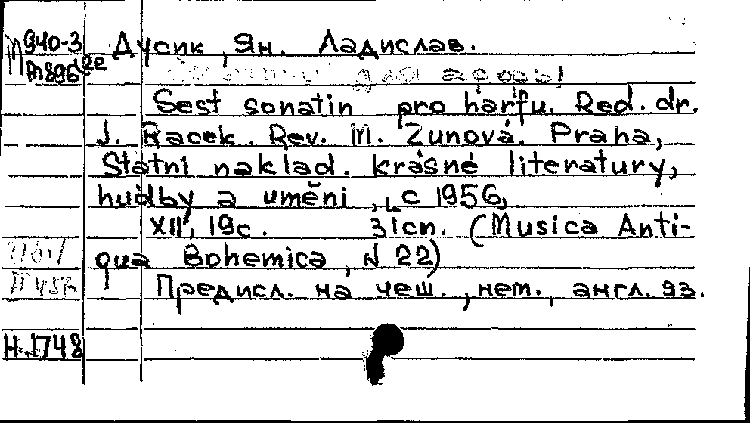 940-3 Дусик, Ян. Ладислав.
для арфы
Šest sonatin pro harfu. Red. dr.
J. Racek. Rev. M. Zunová. Praha,
Státní naklad. krásné literatury,
hudby a umění, c 1956,
XII, 19с. (Musica Anti-
qua Bohemica, N 22)
Предисл. на чеш., нем., англ. яз.
Н.1748